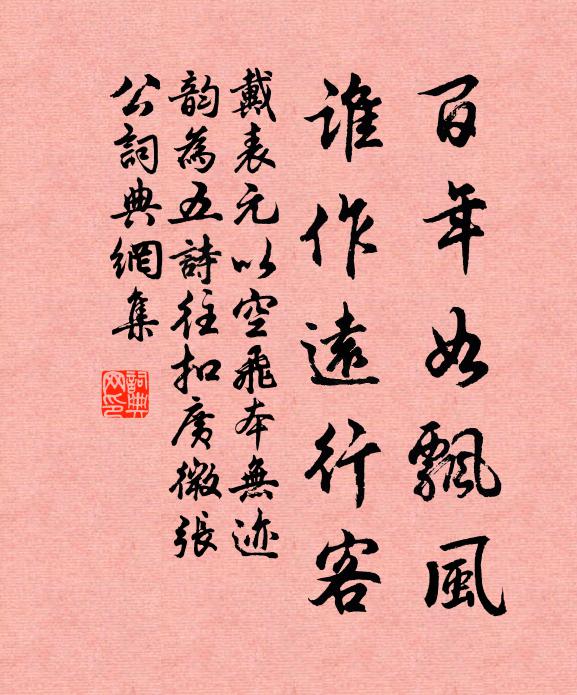 百年如飄風
誰作遠行客
戴表元以空飛本無迹
韵為五詩往扣廣微張
公詞典網集
詞典
网印